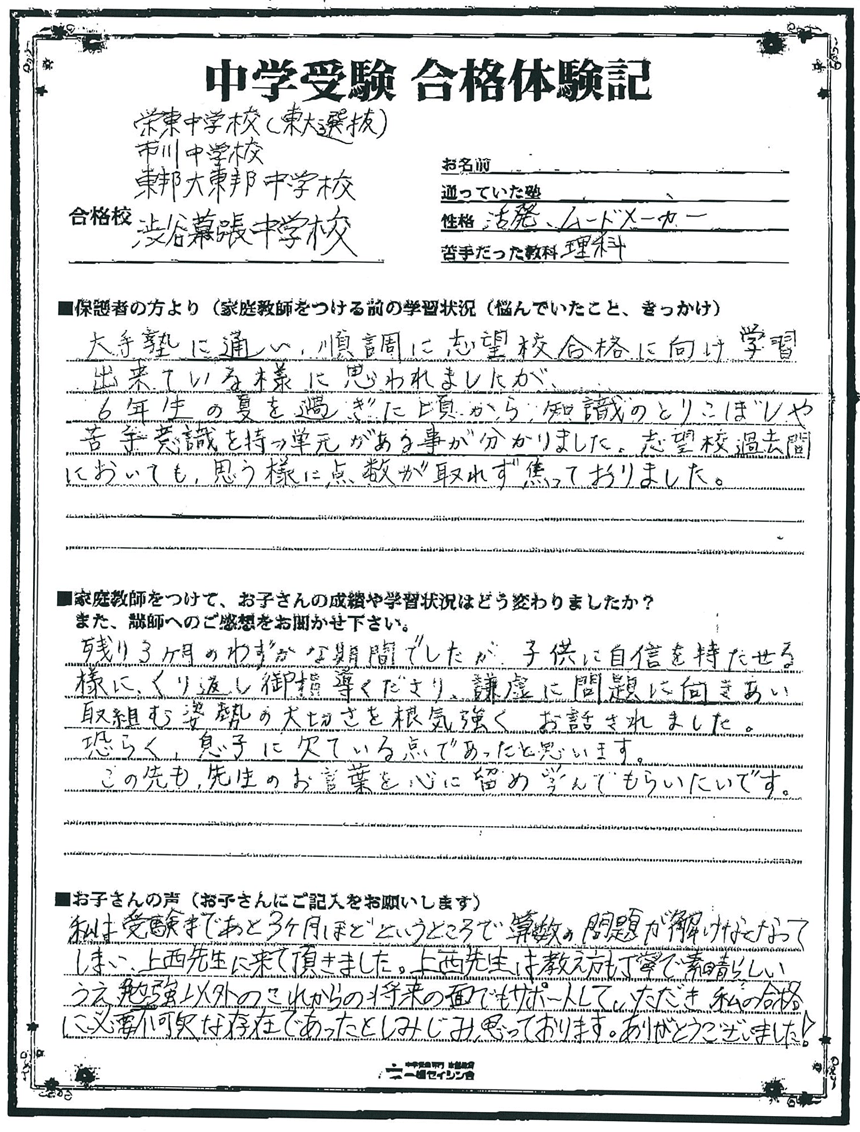 中学受験 合格体験記
栄東中学校(東大選抜)
市川中学校
東邦大東邦中学校
合格校 渋谷幕張中学校
お名前
通っていた塾
性格 活発、ムードメーカー
苦手だった教科 理科
■保護者の方より（家庭教師をつける前の学習状況（悩んでいたこと、きっかけ）
大手塾に通い、順調に志望校合格に向け学習
出来ている様に思われましたが、
6年生の夏を過ぎた頃から、知識のとりこぼしや
苦手意識を持つ単元がある事が分かりました。志望校過去問
においても、思う様に点数が取れず焦っておりました。
■家庭教師をつけて、お子さんの成績や学習状況はどう変わりましたか？
また、講師へのご感想をお聞かせ下さい。
残り3ヶ月のわずかな期間でしたが、子供に自信を持たせる
様に、くり返し御指導くださり、謙虚に問題に向きあい
取組む姿勢の大切さを根気強く お話されました。
恐らく、息子に欠ている点であったと思います。
この先も、先生のお言葉を心に留め学んでもらいたいです。
■お子さんの声（お子さんにご記入をお願いします）
私は受験まであと3ヶ月ほどというところで算数の問題が解けなくなって
しまい、上西先生に来て頂きました。上西先生は教え方も丁寧で素晴らしい
うえ、勉強以外のこれからの将来の面でもサポートしていただき、私の合格
に必要不可欠な存在であったとしみじみ思っております。ありがとうございました!
中学受験専門 家庭教師
一橋セイシン会